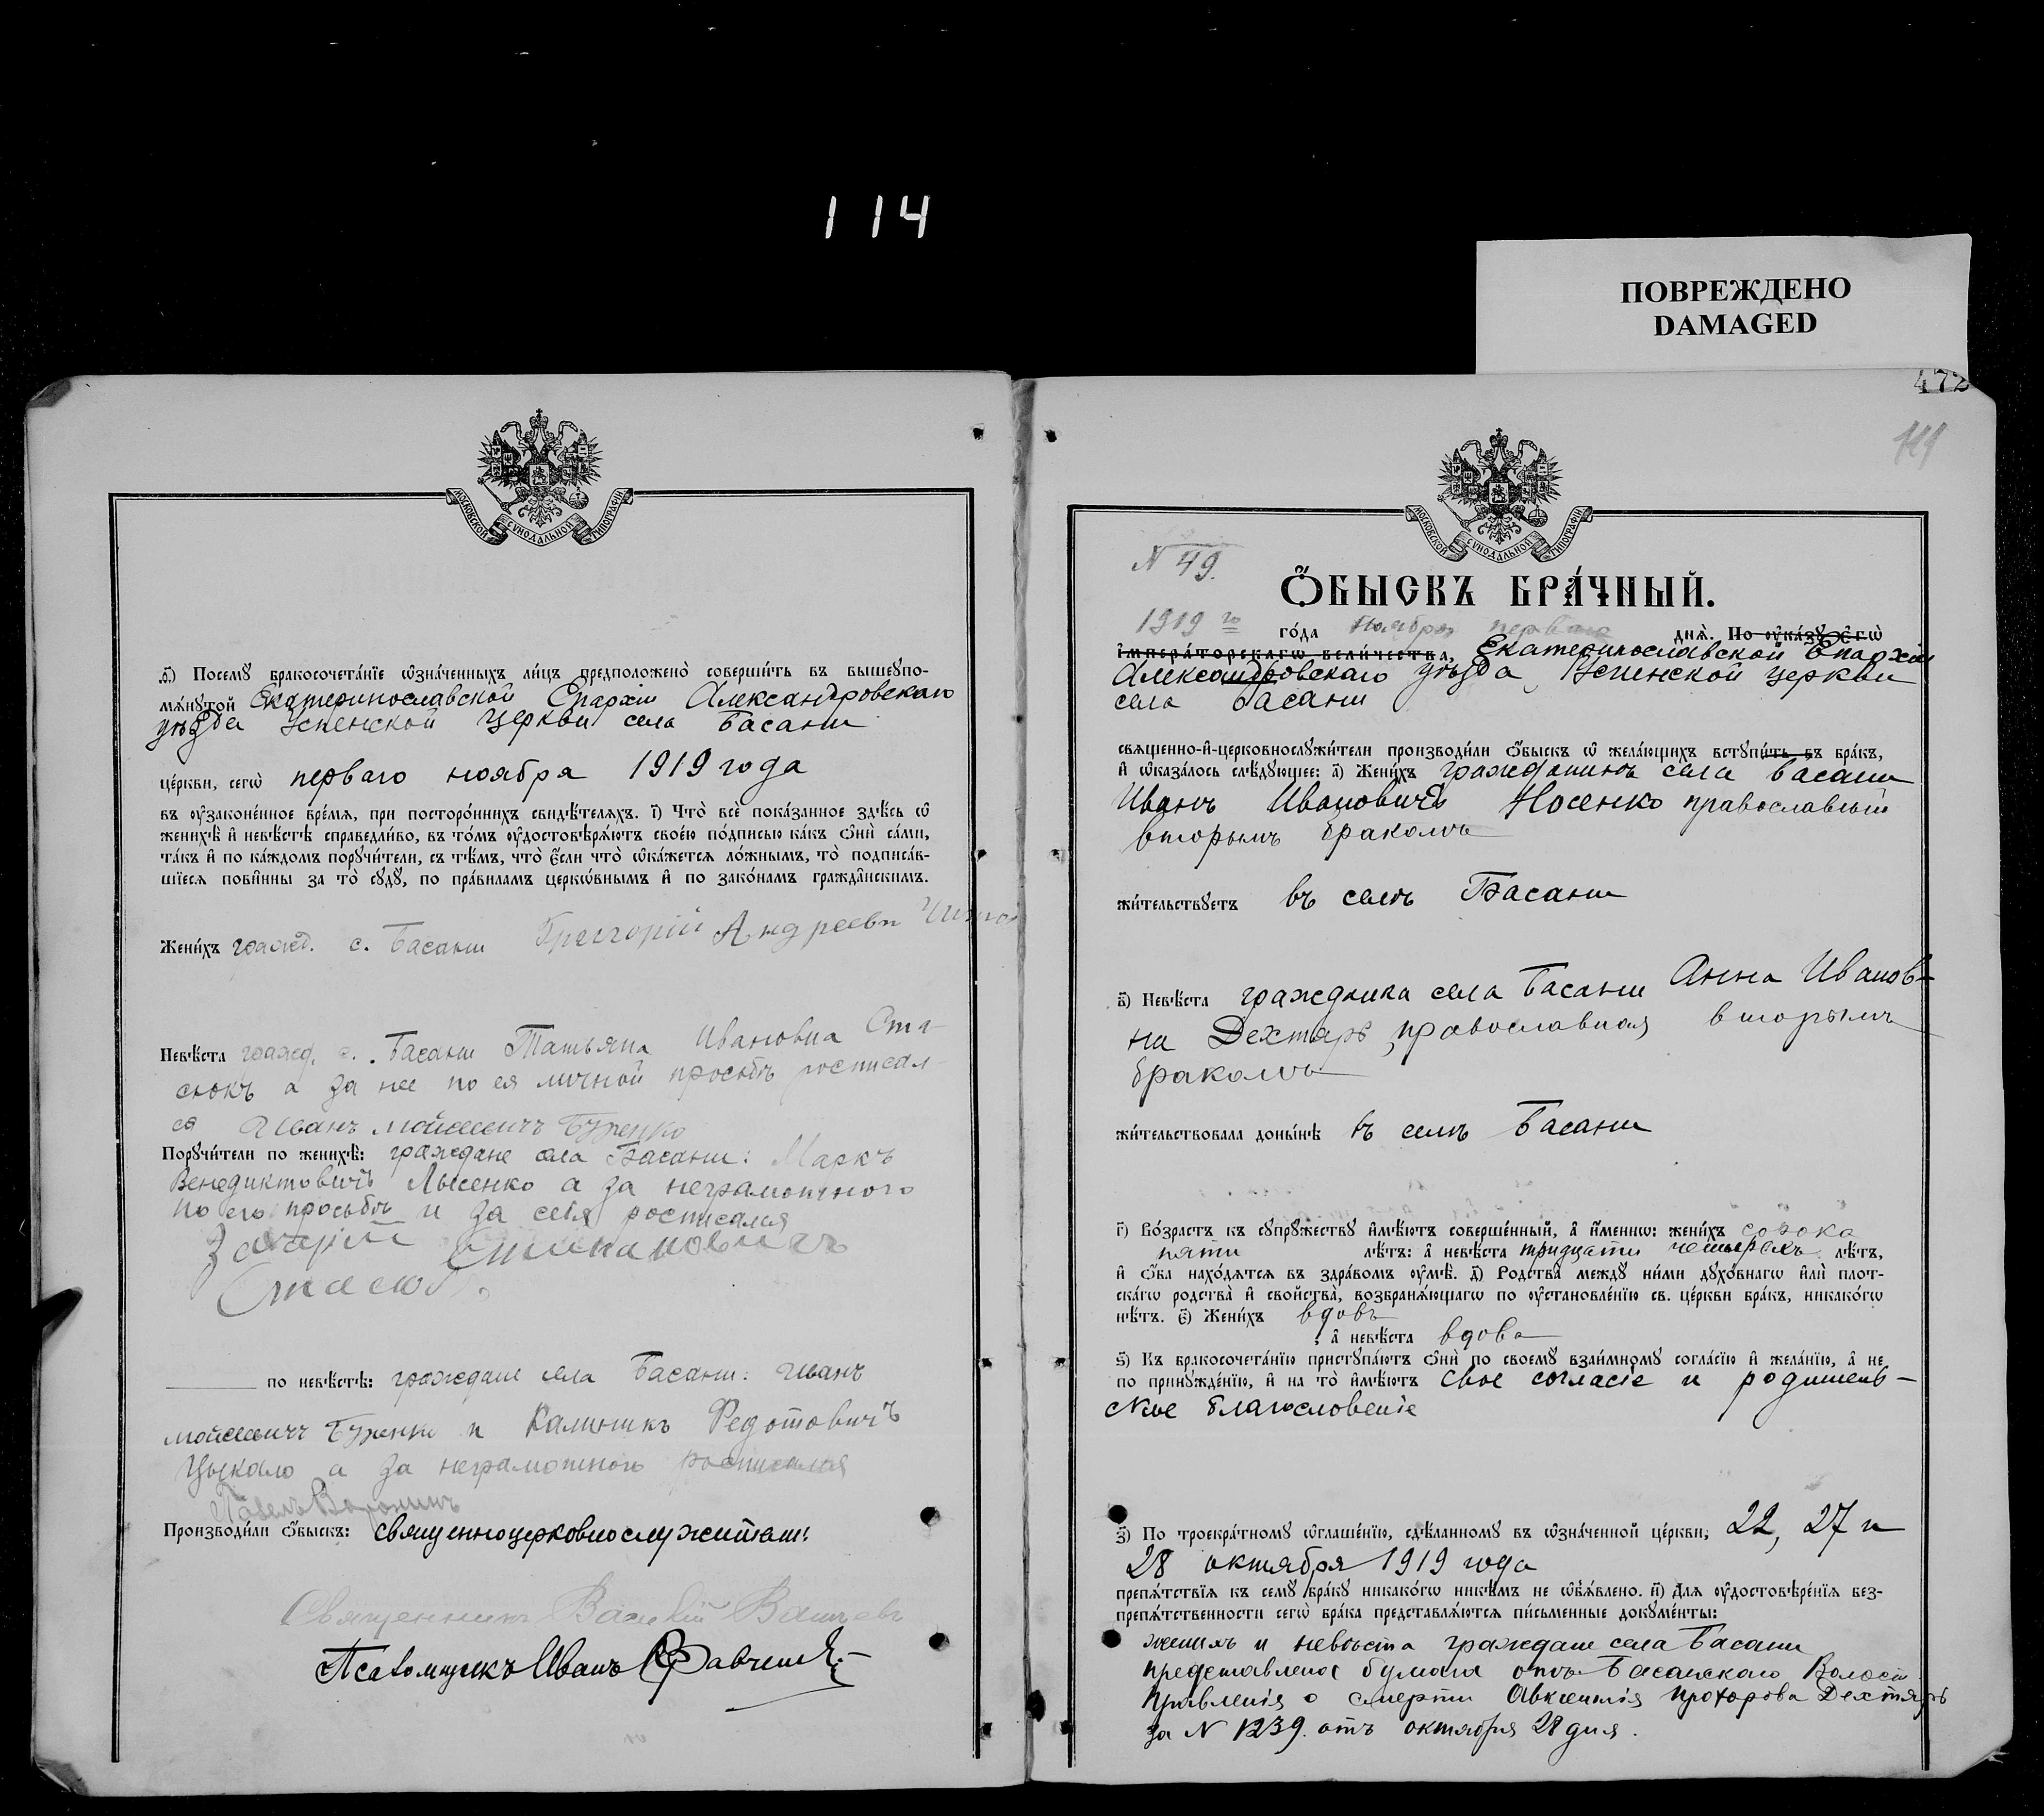 114
ПОВРЕЖДЕНО
DAMAGED
МОСКОВСКОЙ СУНОДАЛЬНОЙ ТИПОГРАФІИ
ѳ҃) Посемꙋ бракосочета́нїе ѡ҆зна́ченныхъ ли́цъ предположено̀ соверши́ть въ вышеꙋпо-
мѧ́нꙋтой Екатеринославской Епархіи Александровскаго
уѣзда Успенской церкви села Басани
це́ркви, сегѡ̀ перваго ноября 1919 года
въ ᲂу҆законе́нное вре́мѧ, при посторо́ннихъ свидѣ́телѧхъ. і҃) Что̀ всѐ пока́занное здѣ́сь ѡ҆
женихѣ̀ и҆ невѣ́стѣ справедли́во, въ то́мъ ᲂу҆достовѣрѧ́ютъ свое́ю по́дписью ка́къ ѻ҆нѝ са́ми,
та́къ и҆ по ка́ждомъ порꙋчи́тели, съ тѣ́мъ, что̀ є҆́сли что̀ ѡ҆ка́жетсѧ ло́жнымъ, то̀ подписа́в-
шїесѧ пови́нны за то̀ сꙋдꙋ̀, по пра́виламъ церко́внымъ и҆ по зако́намъ гражда́нскимъ.
Жени́хъ гражд. с. Басани Григорій Андреевъ
Невѣ́ста гражд. с. Басани Татьяна Ивановна Ста-
сюкъ а за нее по ея личной просьбѣ росписал-
ся Иванъ Мойсеевичъ Буренко
Порꙋчи́тели по женихѣ̀: граждане села Басани: Маркъ
Венедиктовичъ Лысенко а за неграмотного
по его просьбѣ и за себя росписался
Захарій Стасюкъ
по невѣ́стѣ: граждане села Басани: Иванъ
Мойсеевичъ Буренко и Калиникъ Федотовичъ
Цыкало а за неграмотного росписался
Павелъ Воронинъ
Производи́ли ѻ҆́быскъ: священноцерковнослужители:
Священникъ Василій
Псаломщикъ Иванъ Кравченко
472
119
МОСКОВСКОЙ СУНОДАЛЬНОЙ ТИПОГРАФІИ
N 49.
Ѻ҆́БЫСКЪ БРА́ЧНЫЙ.
1919 го го́да Ноября перваго днѧ̀. По ᲂу҆ка́зꙋ Є҆гѡ̀
І҆мпера́торскагѡ вели́чества, Екатеринославской Епархіи
Александровскаго уѣзда, Успенской церкви
села Басани
свѧщенно-и҆-церковнослꙋжи́тели производи́ли ѻ҆́быскъ ѡ҆ жела́ющихъ встꙋпи́ть въ бра́къ,
и҆ ѡ҆каза́лось слѣ́дꙋющее: а҃) Жени́хъ гражданинъ села Басани
Иванъ Ивановичъ Носенко православный
вторымъ бракомъ
жи́тельствꙋетъ въ селѣ Басани
в҃) Невѣ́ста гражданка села Басани Анна Иванов-
на Дехтярь, православная вторымъ
бракомъ
жи́тельствовала доны́нѣ въ селѣ Басани
г҃) Во́зрастъ къ сꙋпрꙋ́жествꙋ и҆мѣ́ютъ соверше́нный, а҆ и҆́менно: жени́хъ сорока
пяти лѣ́тъ: а҆ невѣ́ста тридцати четырехъ лѣ́тъ,
и҆ ѻ҆́ба нахо́дѧтсѧ въ здра́вомъ ᲂу҆мѣ̀. д҃) Родства̀ междꙋ̀ ни́ми дꙋхо́внагѡ и҆лѝ плот-
ска́гѡ родства̀ и҆ сво́йства, возбранѧ́ющагѡ по ᲂу҆становле́нїю св. це́ркви бра́къ, никако́гѡ
нѣ́тъ. є҃) Жени́хъ вдовъ
, а҆ невѣ́ста вдова
ѕ҃) Къ бракосочета́нїю пристꙋпа́ютъ ѻ҆нѝ по своемꙋ̀ взаи́мномꙋ согла́сїю и҆ жела́нїю, а҆ не
по принꙋжде́нїю, и҆ на то̀ и҆мѣ́ютъ свое согласіе и родитель-
ское благословеніе
з҃) По троекра́тномꙋ ѡ҆глаше́нїю, сдѣ́ланномꙋ въ ѡ҆зна́ченной це́ркви, 22, 27 и
28 октября 1919 года
препѧ́тствїѧ къ семꙋ̀ бра́кꙋ никако́гѡ никѣ́мъ не ѡ҆б̾ѧ́влено. и҃) Длѧ ᲂу҆достовѣре́нїѧ без-
препѧ́тственности сегѡ̀ бра́ка представлѧ́ютсѧ пи́сьменные докꙋме́нты:
женихъ и невѣста граждане села Басани
представлена бумага отъ Басанскаго Волост.
Правленія о смерти Авксентія Прохорова Дехтярь
за N 1239. отъ октября 28 дня.